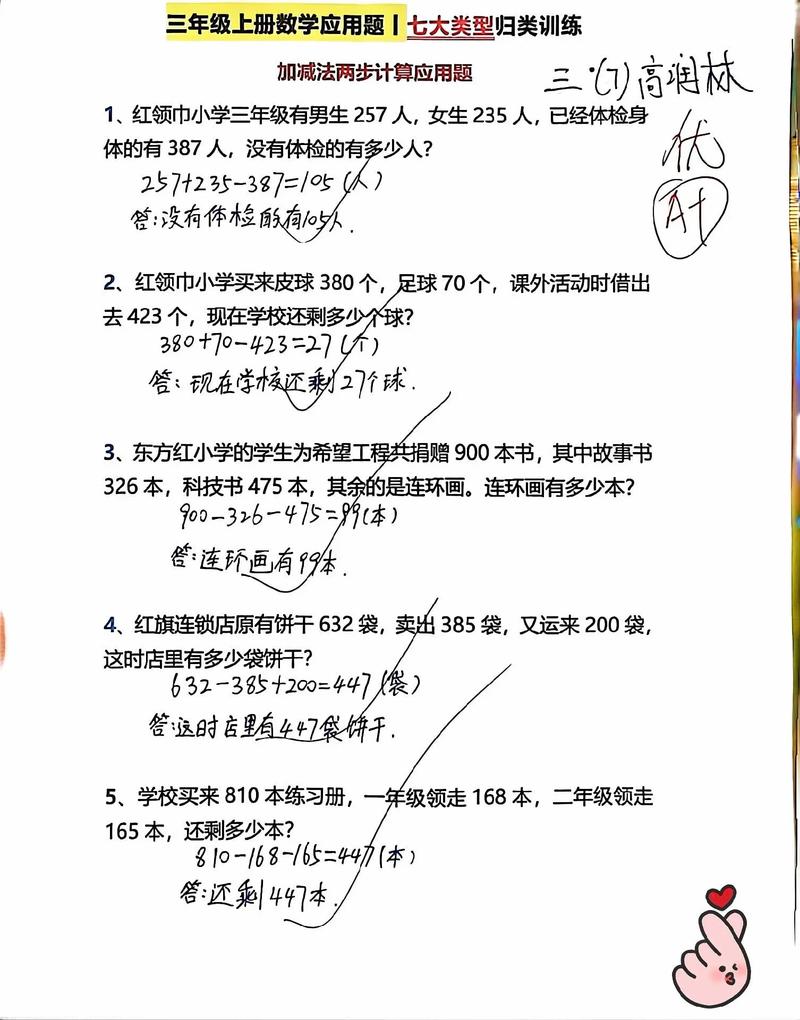 三年级上册数学应用题 | 七大类型归类训练
加减法两步计算应用题
三·(7) 高润林
优
A+
1、红领巾小学三年级有男生 257 人，女生 235 人，已经体检身
体的有 387 人，没有体检的有多少人？
257+235-387=105(人)
答：没有体检的有105人.
2、红领巾小学买来皮球 380 个，足球 70 个，课外活动时借出
去 423 个，现在学校还剩多少个球？
380+70-423=27(个)
答：现在学校还剩27个球.
3、东方红小学的学生为希望工程共捐赠 900 本书，其中故事书
326 本，科技书 475 本，其余的是连环画。连环画有多少本？
900-326-475=99(本)
答：连环画有99本.
4、红旗连锁店原有饼干 632 袋，卖出 385 袋，又运来 200 袋，
这时店里有多少袋饼干？
632-385+200=447(袋)
答：这时店里有447袋饼干.
5、学校买来 810 本练习册，一年级领走 168 本，二年级领走
165 本，还剩多少本？
810-168-165=447(本)
答：还剩447本.